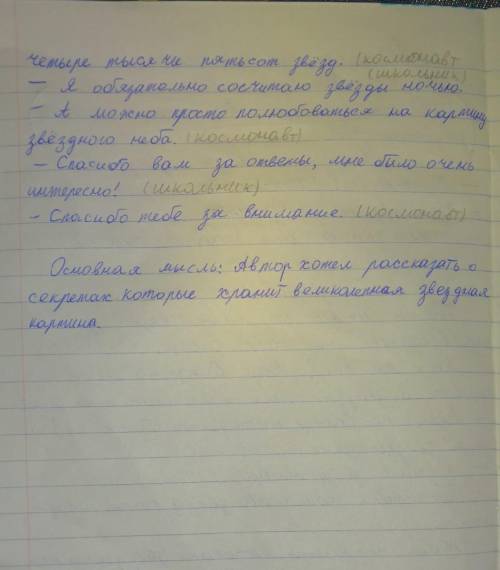 четыре тысячи пятьсот звёзд. (космонавт
(школьник)
— Я обязательно сосчитаю звёзды ночью.
— А можно просто полюбоваться на картину
звёздного неба. (космонавт)
— Спасибо вам за ответы, мне было очень
интересно! (школьник)
— Спасибо тебе за внимание. (космонавт)
Основная мысль: Автор хотел рассказать о
секретах которые хранит великолепная звездная
картина.